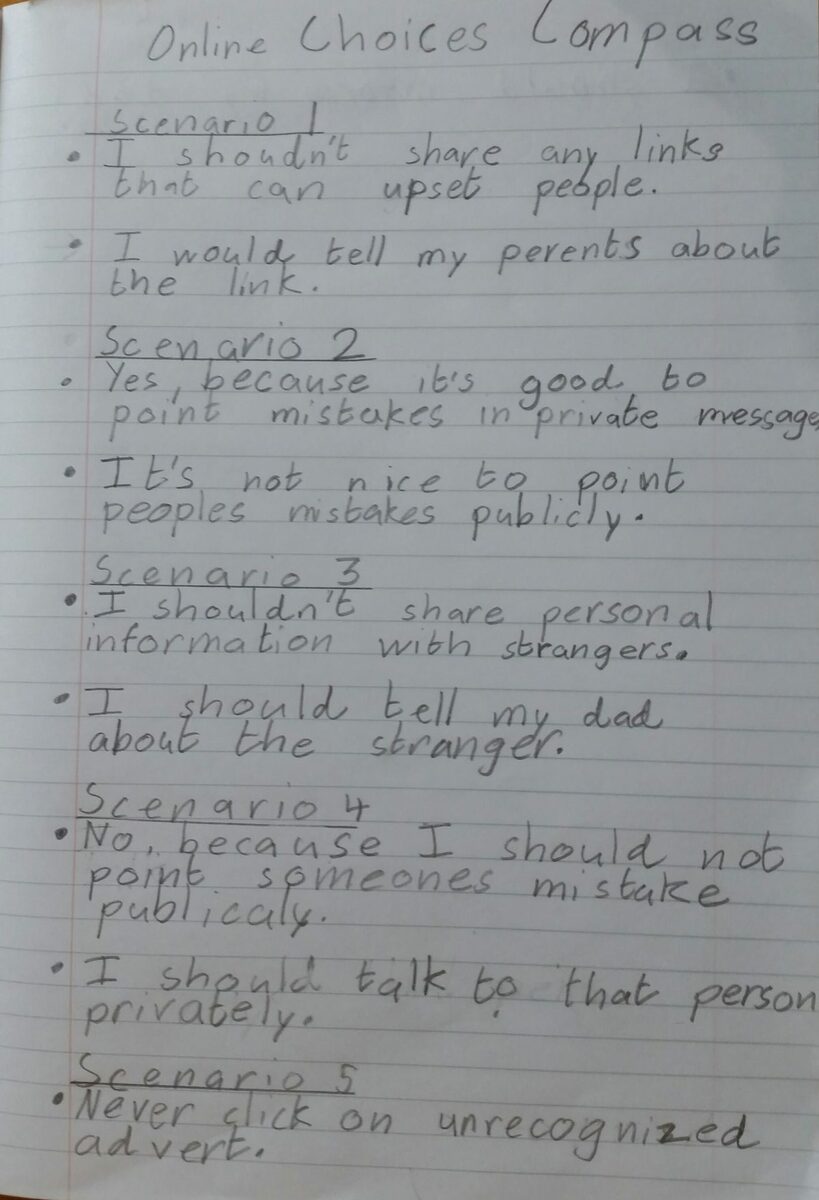 Online Choices Compass
Scenario 1
• I shoudn't share any links
that can upset people.
• I would tell my perents about
the link.
Scenario 2
• Yes, because it's good to
point mistakes in private message
• It's not nice to point
peoples mistakes publicly.
Scenario 3
• I shouldn't share personal
information with strangers.
• I should tell my dad
about the stranger.
Scenario 4
• No, because I should not
point someones mistake
publicaly.
• I should talk to that person
privately.
Scenario 5
• Never click on unrecognized
advert.